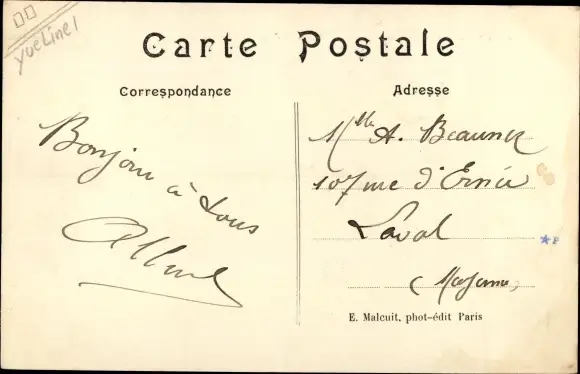 Carte Postale
Correspondance
Adresse
Bonjour à tous
Albert
Mlle A. Beaunez
107 rue d'Ernée
Laval
(Mayenne)
E. Malcuit, phot-édit Paris